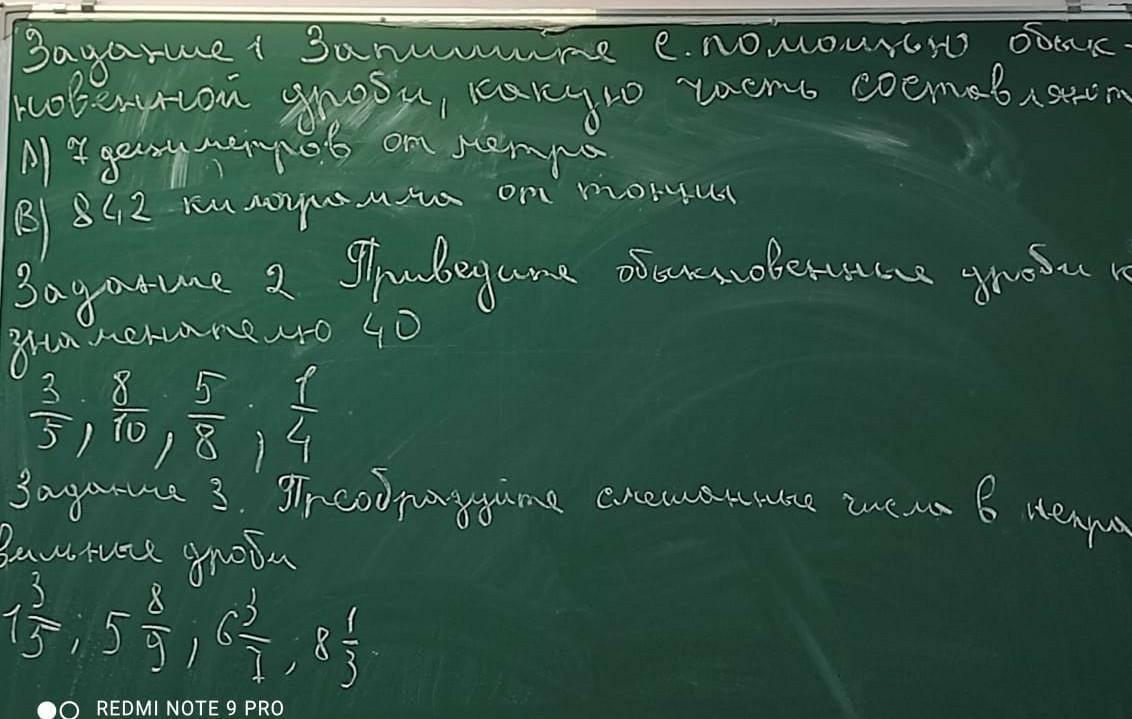 Задание 1 Запишите с помощью обык-
новенной дроби, какую часть составляют
А) 7 дециметров от метра
В) 842 килограмма от тонны
Задание 2 Приведите обыкновенные дроби к
знаменателю 40
3/5, 8/10, 5/8, 1/4
Задание 3. Преобразуйте смешанные числа в непра
вильные дроби
1 3/5; 5 8/9, 6 3/7, 8 1/3
REDMI NOTE 9 PRO